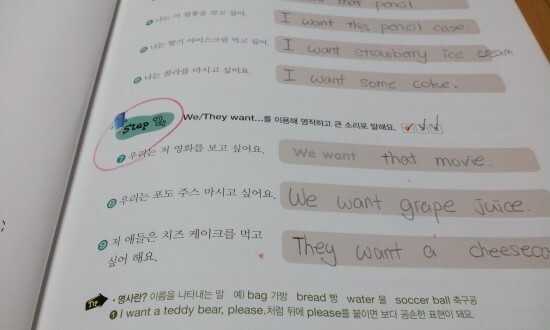 that pencil.
나는 이 필통을 갖고 싶어.
I want this pencil case.
나는 딸기 아이스크림 먹고 싶어.
I want strawberry ice cream
나는 콜라를 마시고 싶어요.
I want some coke.
Step 2 We/They want...를 이용해 영작하고 큰 소리로 말해요.
7 우리는 저 영화를 보고 싶어요.
We want that movie.
8 우리는 포도 주스 마시고 싶어요.
We want grape juice.
9 저 애들은 치즈 케이크를 먹고
싶어 해요.
They want a cheeseca
Tip • 명사란? 이름을 나타내는 말 예) bag 가방 bread 빵 water 물 soccer ball 축구공
1 I want a teddy bear, please.처럼 뒤에 please를 붙이면 보다 공손한 표현이 돼요.